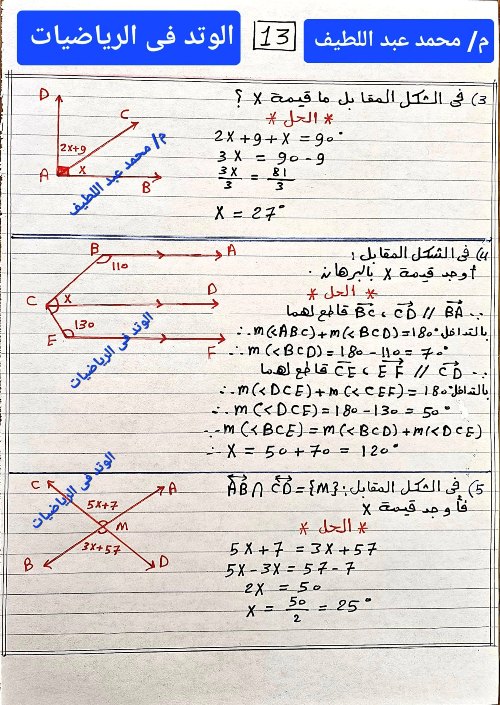 الوتد فى الرياضيات
13
م/ محمد عبد اللطيف
3) فى الشكل المقابل ما قيمة X ؟
* الحل *
2X+9+X = 90°
3X = 90-9
3X/3 = 81/3
X = 27°
D
C
2X+9
X
A
B
م/ محمد عبد اللطيف
4) فى الشكل المقابل:
أوجد قيمة X بالبرهان.
* الحل *
∵ BA // CD ، BC قاطع لهما
∴ m(<ABC)+m(<BCD)=180° بالتداخل
∴ m(<BCD)=180-110=70°
∵ CD // EF ، CE قاطع لهما
∴ m(<DCE)+m(<CEF)=180° بالتداخل
∴ m(<DCE)=180-130=50°
∴ m(<BCE)=m(<BCD)+m(<DCE)
∴ X = 50+70 = 120°
B
A
110
C
X
D
130
E
F
الوتد فى الرياضيات
5) فى الشكل المقابل: AB ∩ CD = {M}
فأوجد قيمة X
* الحل *
5X+7 = 3X+57
5X-3X = 57-7
2X = 50
X = 50/2 = 25°
C
A
5X+7
M
3X+57
B
D
الوتد فى الرياضيات